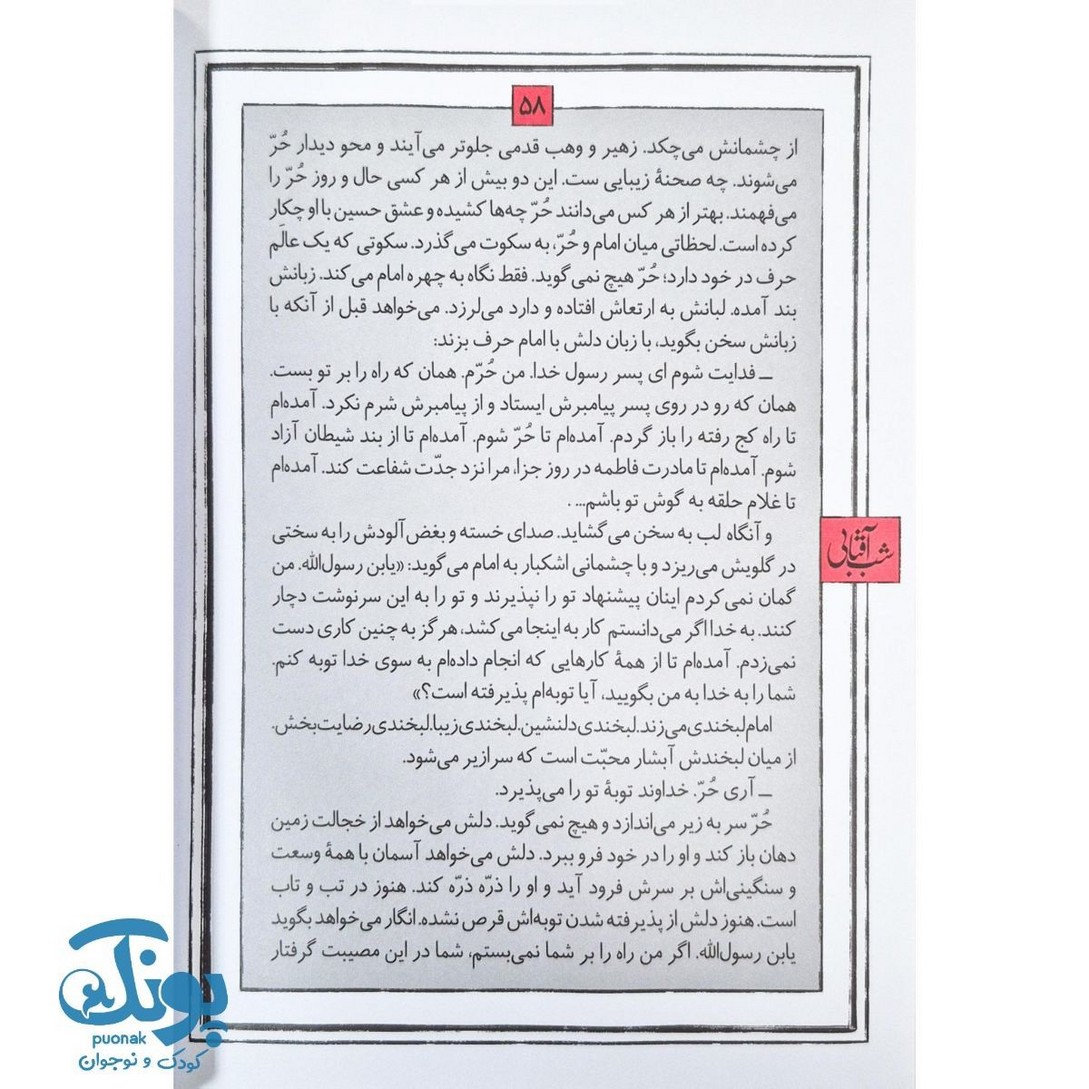 ۵۸
از چشمانش می‌چکد. زهیر و وهب قدمی جلوتر می‌آیند و محو دیدار حُرّ
می‌شوند. چه صحنهٔ زیبایی ست. این دو بیش از هر کسی حال و روز حُرّ را
می‌فهمند. بهتر از هر کس می‌دانند حُرّ چه‌ها کشیده و عشق حسین با او چکار
کرده است. لحظاتی میان امام و حُرّ، به سکوت می‌گذرد. سکوتی که یک عالَم
حرف در خود دارد؛ حُرّ هیچ نمی‌گوید. فقط نگاه به چهره امام می‌کند. زبانش
بند آمده. لبانش به ارتعاش افتاده و دارد می‌لرزد. می‌خواهد قبل از آنکه با
زبانش سخن بگوید، با زبان دلش با امام حرف بزند:
ــ فدایت شوم ای پسر رسول خدا. من حُرّم. همان که راه را بر تو بست.
همان که رو در روی پسر پیامبرش ایستاد و از پیامبرش شرم نکرد. آمده‌ام
تا راه کج رفته را باز گردم. آمده‌ام تا حُرّ شوم. آمده‌ام تا از بند شیطان آزاد
شوم. آمده‌ام تا مادرت فاطمه در روز جزا، مرا نزد جدّت شفاعت کند. آمده‌ام
تا غلام حلقه به گوش تو باشم... .
و آنگاه لب به سخن می‌گشاید. صدای خسته و بغض آلودش را به سختی
در گلویش می‌ریزد و با چشمانی اشکبار به امام می‌گوید: «یابن رسول‌الله. من
گمان نمی‌کردم اینان پیشنهاد تو را نپذیرند و تو را به این سرنوشت دچار
کنند. به خدا اگر می‌دانستم کار به اینجا می‌کشد، هرگز به چنین کاری دست
نمی‌زدم. آمده‌ام تا از همهٔ کارهایی که انجام داده‌ام به سوی خدا توبه کنم.
شما را به خدا به من بگویید، آیا توبه‌ام پذیرفته است؟»
امام لبخندی می‌زند. لبخندی دلنشین. لبخندی زیبا. لبخندی رضایت‌بخش.
از میان لبخندش آبشار محبّت است که سرازیر می‌شود.
ــ آری حُرّ. خداوند توبهٔ تو را می‌پذیرد.
حُرّ سر به زیر می‌اندازد و هیچ نمی‌گوید. دلش می‌خواهد از خجالت زمین
دهان باز کند و او را در خود فرو ببرد. دلش می‌خواهد آسمان با همهٔ وسعت
و سنگینی‌اش بر سرش فرود آید و او را ذرّه ذرّه کند. هنوز در تب و تاب
است. هنوز دلش از پذیرفته شدن توبه‌اش قرص نشده. انگار می‌خواهد بگوید
یابن رسول‌الله. اگر من راه را بر شما نمی‌بستم، شما در این مصیبت گرفتار
شب آفتابی
پونک
puonak
کودک و نوجوان